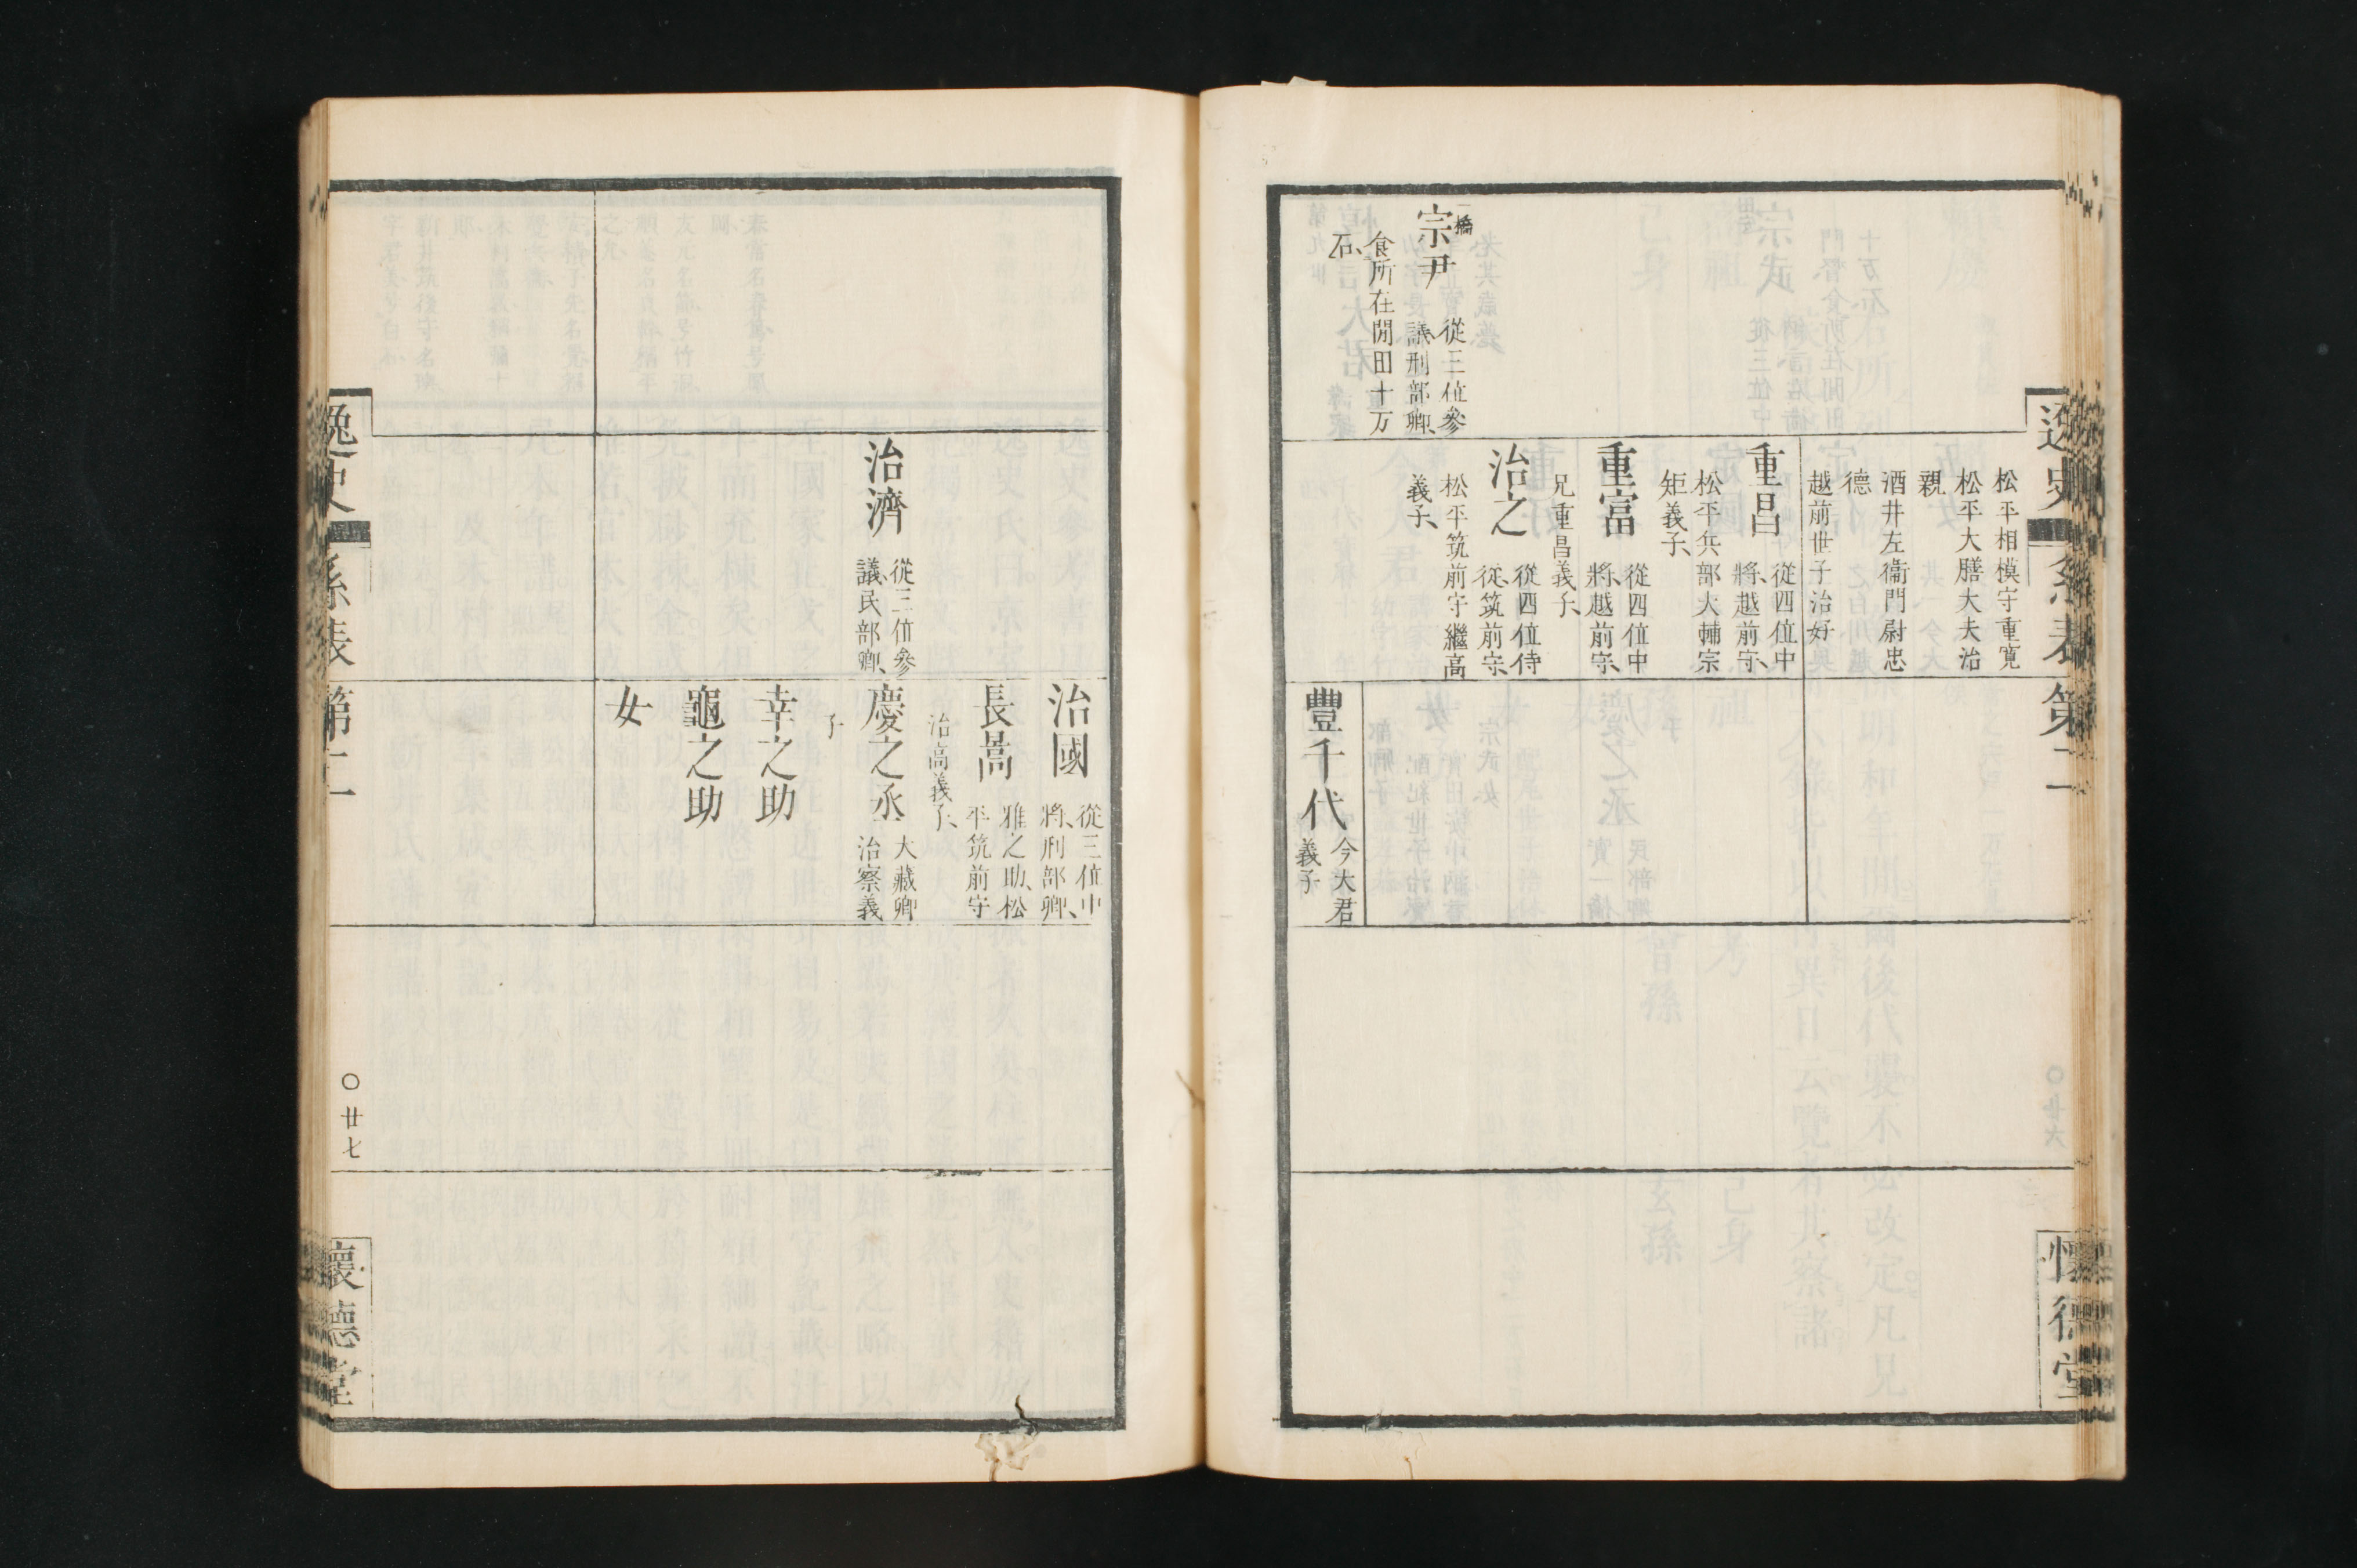 松平相模守重寛
松平大膳大夫治
親
酒井左衞門尉忠
德
越前世子治好
一橋
宗尹
從三位參
議、刑部卿、
食所在閒田十万
石、
重昌
從四位中
將、越前守、
松平兵部大輔宗
矩義子、
重富
從四位中
將、越前守、
兄重昌義子、
治之
從四位侍
從、筑前守、
松平筑前守繼高
義子、
豐千代
今大君
義子
逸史
系表
第二
懷德堂
治國
從三位中
將、刑部卿、
長暠
雅之助、松
平筑前守
治高義子、
治濟
從三位參
議、民部卿、
慶之丞
大藏卿
治察義
子
幸之助
龜之助
女
逸史
系表
第二
〇廿七
懷德堂